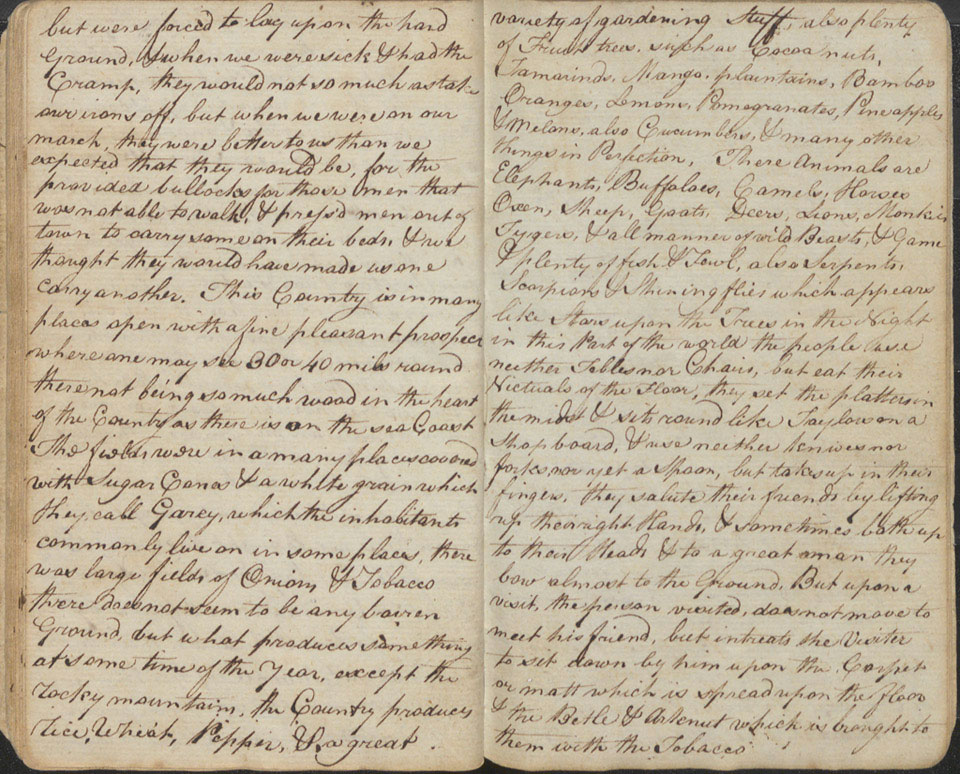 but were forced to lay upon the hard
Ground, & when we were sick & had the
Cramp, they would not so much as take
our irons off, but when we were on our
march, they were better to us than we
expected that they would be, for the
provided bullocks for those men that
was not able to walk, & press'd men out of
town to carry some on their beds, & we
thought they would have made us one
carry another. This Country is in many
places open with a fine pleasant prospect
where one may see 30 or 40 miles round
there not being so much wood in the heart
of the Country as there is on the sea Coast
The fields were in a many places covered
with Sugar Canes & a white grain which
they call Garey, which the inhabitants
commonly live on in some places, there
was large fields of Onions & Tobacco
there does not seem to be any barren
Ground, but what produces something
at some time of the Year, except the
rocky mountains, the Country produces
rice, Wheat, Pepper, & a great
variety of gardening Stuff, also plenty
of Fruit trees, such as Cocoa nuts,
Tamarinds, Mango, plaintains, Bamboo
Oranges, Lemons, Pomegranates, Pineapples
& Melons, also Cucumbers, & many other
things in Perfection, There Animals are
Elephants, Buffaloes, Camels, Horses
Oxen, Sheep, Goats, Deers, Lions, Monkies
Tygers, & all manner of wild Beasts, & Game
& plenty of fish & Fowl, also Serpents,
Scorpians & Shining flies which appears
like Stars upon the Trees in the Night
in this Part of the world the people use
neither Tables nor Chairs, but eat their
Victuals of the Floor, they set the platters in
the midst & sits round like Taylors on a
Shop board, & use neither kniwes nor
forks, nor yet a Spoon, but takes up in their
fingers, they salute their friends by lifting
up their right Hands, & sometimes both up
to their Heads & to a great aman they
bow almost to the Ground, But upon a
visit, the person visited, does not move to
meet his friend, but intreats the Visiter
to sit down by him upon the Carpet
or matt which is spread upon the floor
& the Betle & Arkenut which is brought to
them with the Tobacco